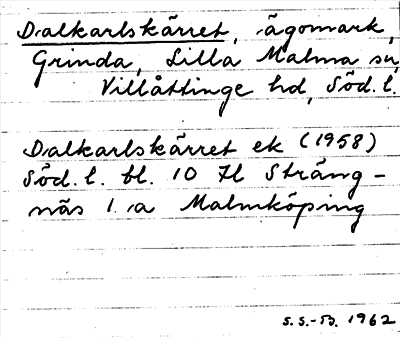 Dalkarlskärret, ägomark,
Grinda, Lilla Malma sn,
Villåttinge hd, Söd. l.
Dalkarlskärret ek (1958)
Söd. l. bl. 10 Il Sträng-
näs 1 a Malmköping
S.S.-B. 1962